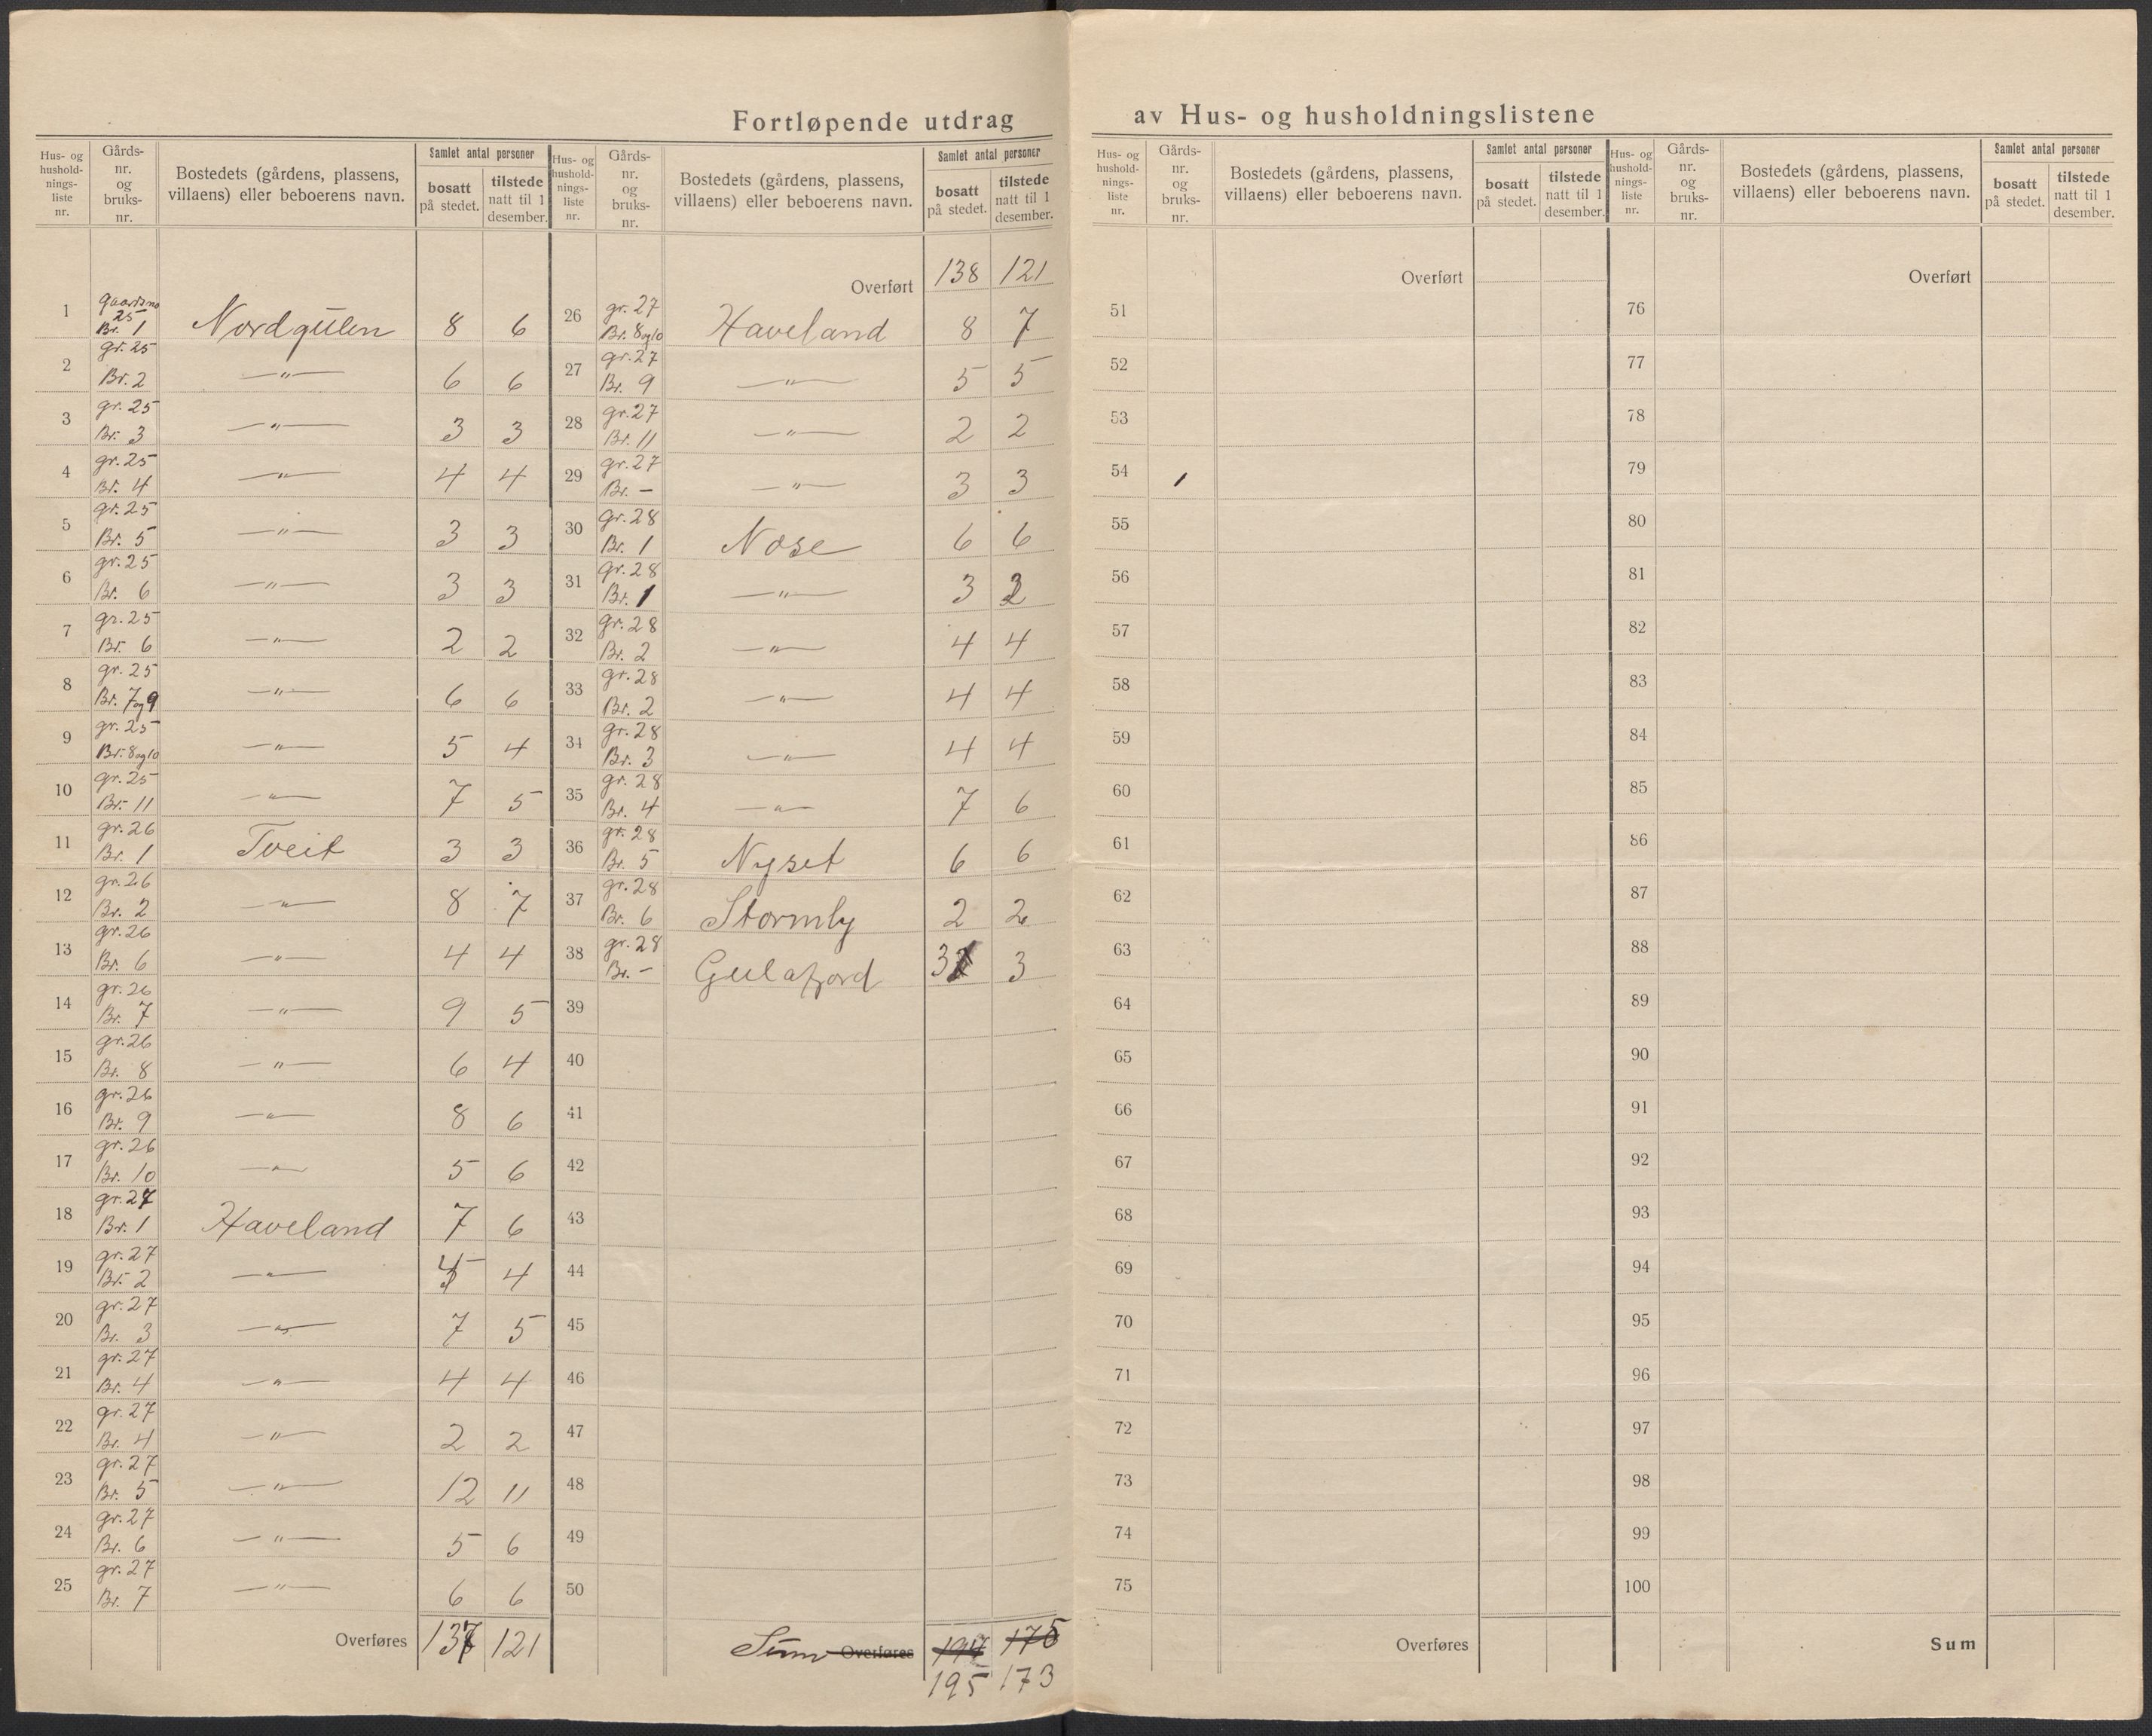 Fortløpende utdrag av Hus- og husholdningslistene
Hus- og hushold-nings-liste nr. Gårds-nr. og bruks-nr. Bostedets (gårdens, plassens, villaens) eller beboerens navn. Samlet antal personer bosatt på stedet. tilstede natt til 1 desember.
1 Gaardsno 25 Br. 1 Nordgulen 8 6
2 gr. 25 Br. 2 —"— 6 6
3 gr. 25 Br. 3 —"— 3 3
4 gr. 25 Br. 4 —"— 4 4
5 gr. 25 Br. 5 —"— 3 3
6 gr. 25 Br. 6 —"— 3 3
7 gr. 25 Br. 6 —"— 2 2
8 gr. 25 Br. 7 og 9 —"— 6 6
9 gr. 25 Br. 8 og 10 —"— 5 4
10 gr. 25 Br. 11 —"— 7 5
11 gr. 26 Br. 1 Tveit 3 3
12 gr. 26 Br. 2 —"— 8 7
13 gr. 26 Br. 6 —"— 4 4
14 gr. 26 Br. 7 —"— 9 5
15 gr. 26 Br. 8 —"— 6 4
16 gr. 26 Br. 9 —"— 8 6
17 gr. 26 Br. 10 —"— 5 6
18 gr. 27 Br. 1 Haveland 7 6
19 gr. 27 Br. 2 —"— 4
20 gr. 27 Br. 3 —"— 7 5
21 gr. 27 Br. 4 —"— 4 4
22 gr. 27 Br. 4 —"— 2 2
23 gr. 27 Br. 5 —"— 12 11
24 gr. 27 Br. 6 —"— 5 6
25 gr. 27 Br. 7 —"— 6 6
Overføres 121
Hus- og hushold-nings-liste nr. Gårds-nr. og bruks-nr. Bostedets (gårdens, plassens, villaens) eller beboerens navn. Samlet antal personer bosatt på stedet. tilstede natt til 1 desember.
Overført 138 121
26 gr. 27 Br. 8 og 10 Haveland 8 7
27 gr. 27 Br. 9 —"— 5 5
28 gr. 27 Br. 11 —"— 2 2
29 gr. 27 Br. – —"— 3 3
30 gr. 28 Br. 1 Nose 6 6
31 gr. 28 Br. 1 —"— 3
32 gr. 28 Br. 2 —"— 4 4
33 gr. 28 Br. 2 —"— 4 4
34 gr. 28 Br. 3 —"— 4 4
35 gr. 28 Br. 4 —"— 7 6
36 gr. 28 Br. 5 Nyset 6 6
37 gr. 28 Br. 6 Stormly 2 2
38 gr. 28 Br. – Gulafjord 3 3
39
40
41
42
43
44
45
46
47
48
49
50
Sum Overføres 194 175
195 173
Hus- og hushold-nings-liste nr. Gårds-nr. og bruks-nr. Bostedets (gårdens, plassens, villaens) eller beboerens navn. Samlet antal personer bosatt på stedet. tilstede natt til 1 desember.
Overført
51
52
53
54
55
56
57
58
59
60
61
62
63
64
65
66
67
68
69
70
71
72
73
74
75
Overføres
Hus- og hushold-nings-liste nr. Gårds-nr. og bruks-nr. Bostedets (gårdens, plassens, villaens) eller beboerens navn. Samlet antal personer bosatt på stedet. tilstede natt til 1 desember.
Overført
76
77
78
79
80
81
82
83
84
85
86
87
88
89
90
91
92
93
94
95
96
97
98
99
100
Sum